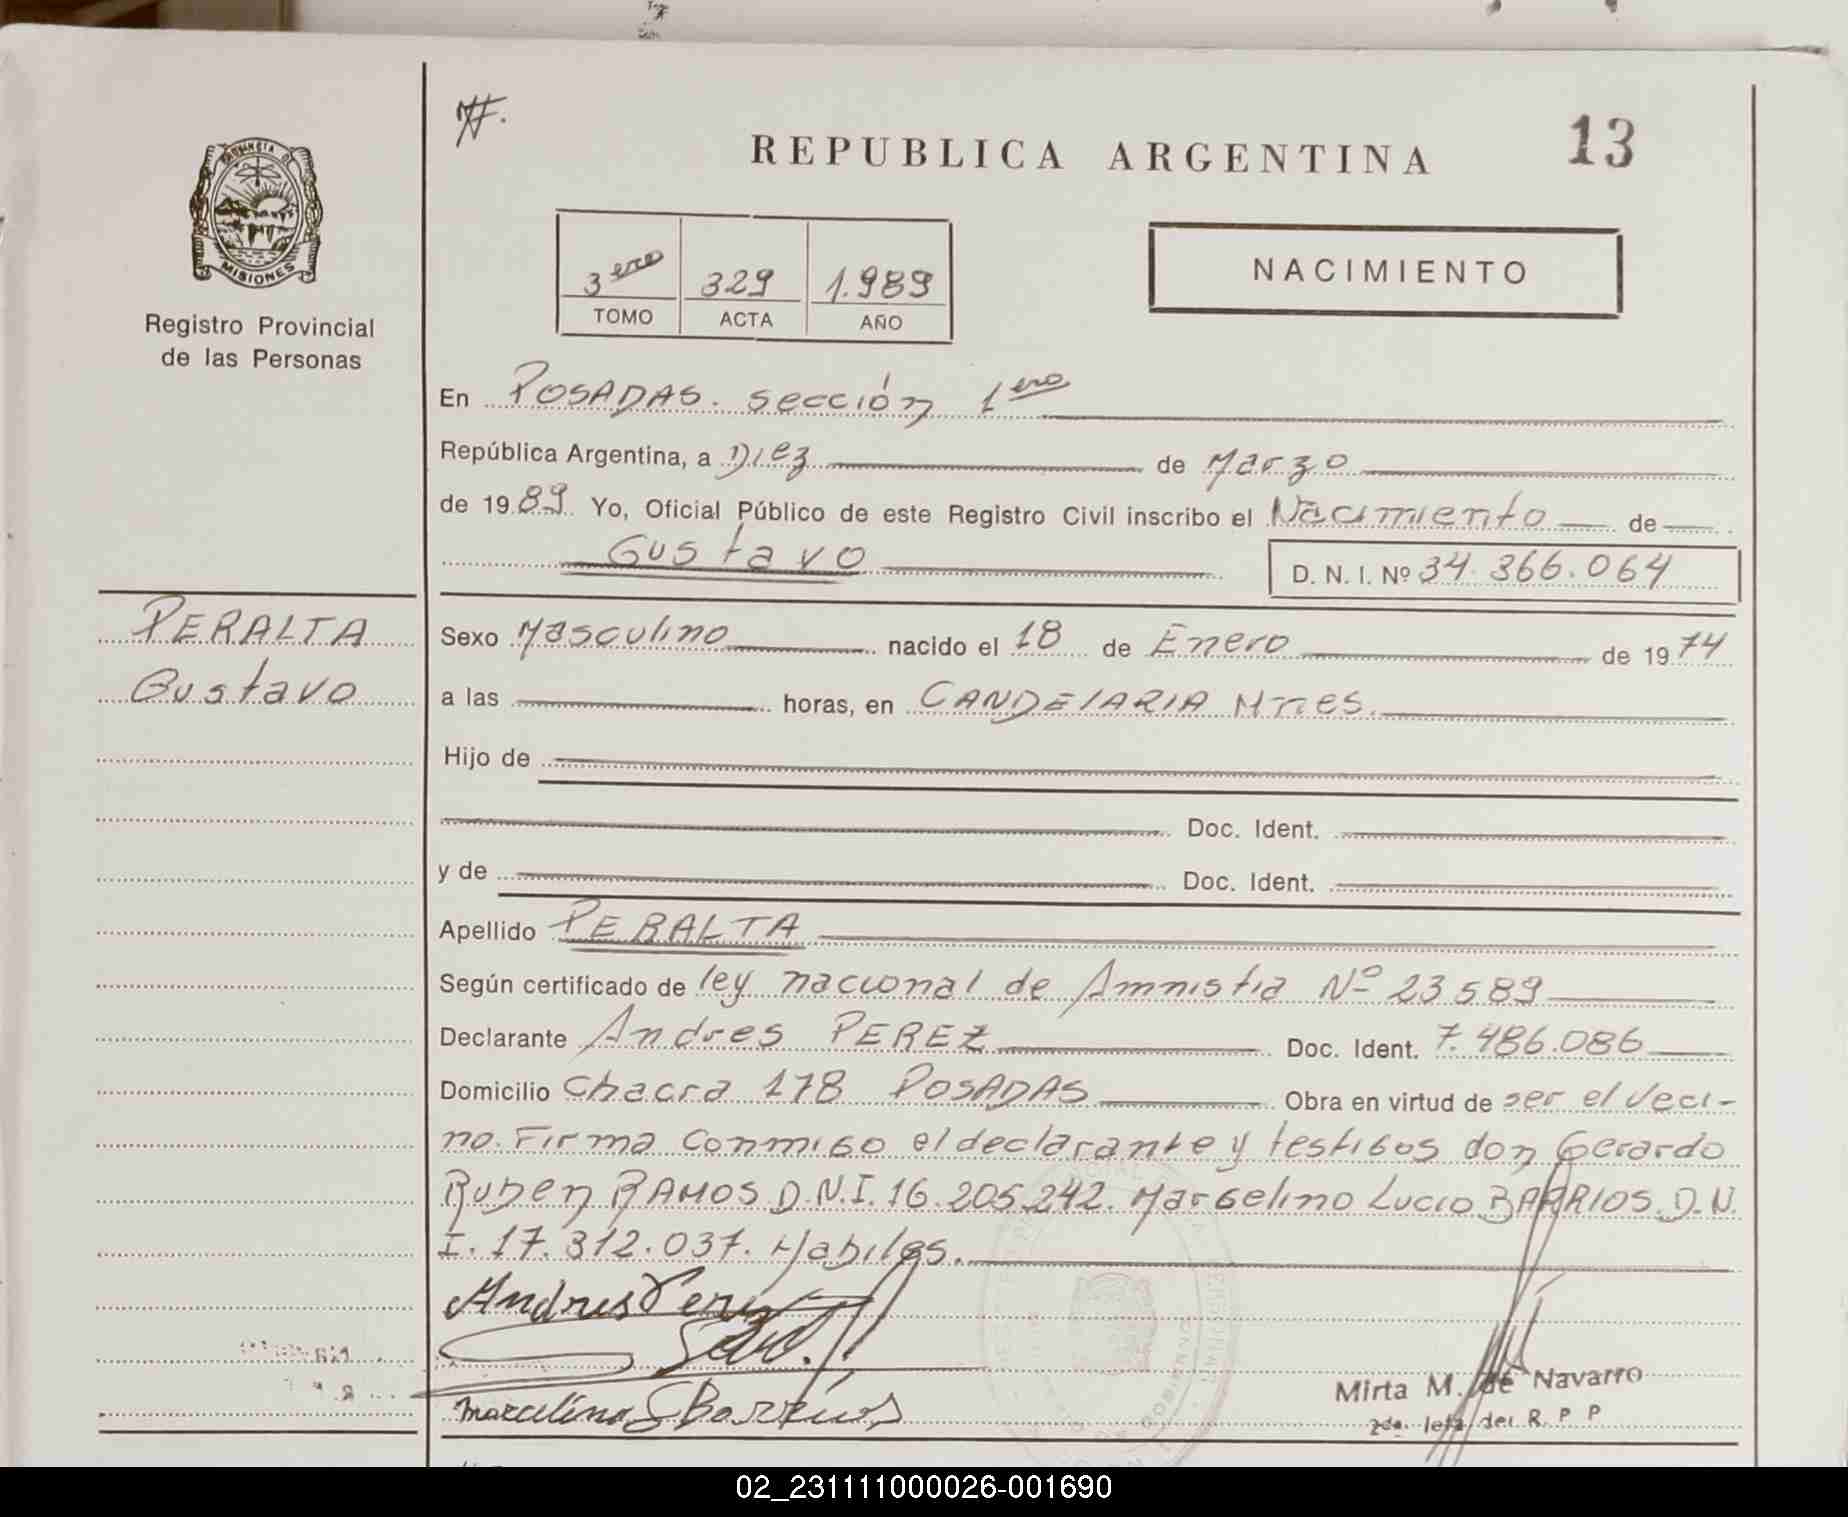 13
REPUBLICA ARGENTINA
PROVINCIA DE
MISIONES
Registro Provincial
de las Personas
3ero 329 1.989
TOMO ACTA AÑO
NACIMIENTO
En POSADAS. sección 1ero
República Argentina, a Diez de Marzo
de 1989 Yo, Oficial Público de este Registro Civil inscribo el Nacimiento de
Gustavo D. N. I. Nº 34.366.064
PERALTA
Gustavo
Sexo Masculino nacido el 18 de Enero de 1974
a las horas, en CANDELARIA Mnes.
Hijo de
Doc. Ident.
y de Doc. Ident.
Apellido PERALTA
Según certificado de ley nacional de Amnistia Nº 23589
Declarante Andres PEREZ Doc. Ident. 7.486.086
Domicilio Chacra 178 POSADAS Obra en virtud de ser el veci-
no. Firma conmigo el declarante y testigos don Gerardo
Ruben RAMOS D.N.I. 16.205.242. Marcelino Lucio BARRIOS. D.N.
I. 17.312.037. Habiles.
Andres Perez
Marcelino Barrios
Mirta M. de Navarro
2da. Jefa del R P P
02_231111000026-001690